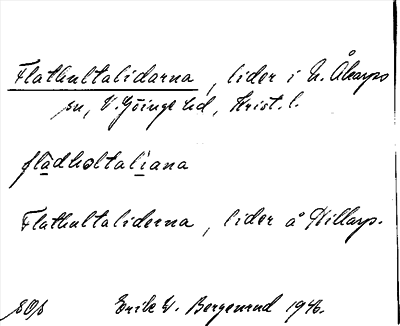 Flathultalidarna, lider i N. Åkarps
sn, V. Göinge hd, Krist. l.
flädholtaliana
Flathultaliderna, lider å Hillarp.
Erik W. Bergenrud 1946.